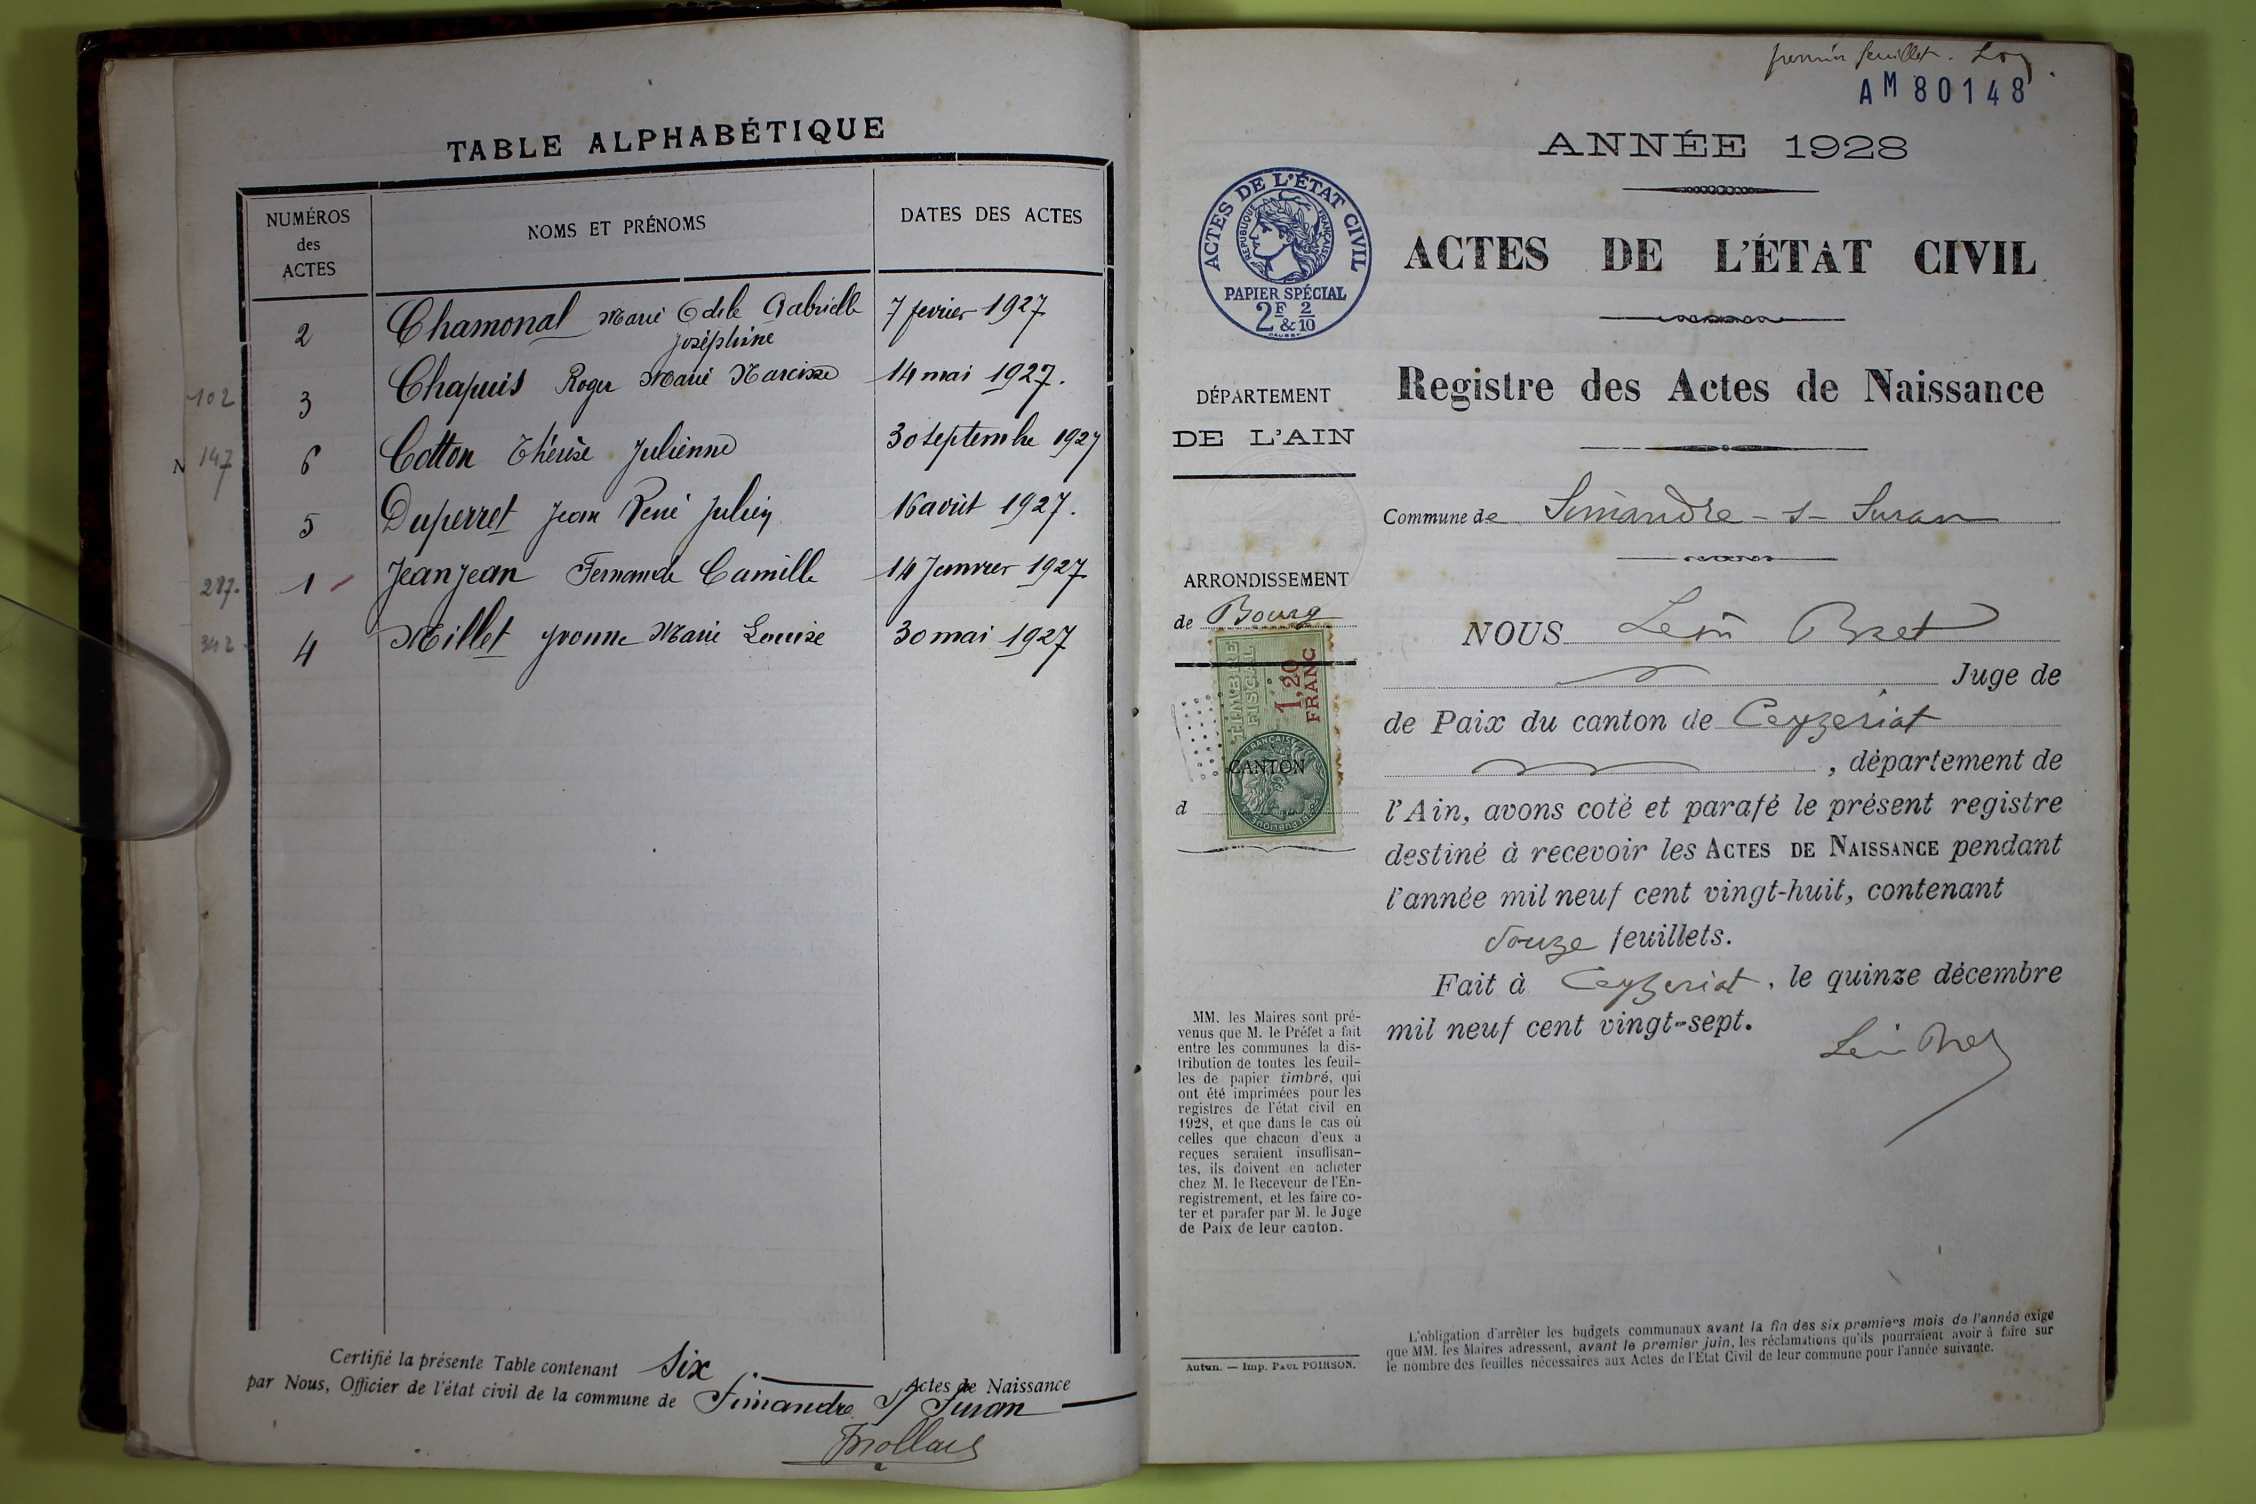 TABLE ALPHABÉTIQUE
NUMÉROS des ACTES
NOMS ET PRÉNOMS
DATES DES ACTES
2 Chamonal Marie Odile Gabrielle 7 fevrier 1927
Joséphine
102 3 Chapuis Roger Marie Narcisse 14 mai 1927.
N 147 6 Cotton Thérèse Julienne 30 septembre 1927
5 Duperret Jean René Julien 16 août 1927.
287. 1 Jeanjean Fernande Camille 14 Janvier 1927
342 4 Millet Yvonne Marie Louise 30 mai 1927
Certifié la présente Table contenant six Actes de Naissance
par Nous, Officier de l'état civil de la commune de Simandre s/ Suran
premier feuillet.
AM 80148
ANNÉE 1928
ACTES DE L'ÉTAT CIVIL
RÉPUBLIQUE FRANÇAISE
PAPIER SPÉCIAL
2F 2
& 10
ACTES DE L'ÉTAT CIVIL
Registre des Actes de Naissance
DÉPARTEMENT
DE L'AIN
Commune de Simandre - s - Suran
ARRONDISSEMENT
de Bourg
TIMBRE
FISCAL
1,20
FRANC
CANTON
d
NOUS Léon Bret
Juge de
de Paix du canton de Ceyzeriat
, département de
l'Ain, avons coté et parafé le présent registre
destiné à recevoir les ACTES DE NAISSANCE pendant
l'année mil neuf cent vingt-huit, contenant
douze feuillets.
Fait à Ceyzeriat, le quinze décembre
mil neuf cent vingt-sept.
Léon Bret
MM. les Maires sont pré-
venus que M. le Préfet a fait
entre les communes la dis-
tribution de toutes les feuil-
les de papier timbré, qui
ont été imprimées pour les
registres de l'état civil en
1928, et que dans le cas où
celles que chacun d'eux a
reçues seraient insuffisan-
tes, ils doivent en acheter
chez M. le Receveur de l'En-
registrement, et les faire co-
ter et parafer par M. le Juge
de Paix de leur canton.
Autun. — Imp. PAUL POIRSON.
L'obligation d'arrêter les budgets communaux avant la fin des six premiers mois de l'année exige
que MM. les Maires adressent, avant le premier juin, les réclamations qu'ils pourraient avoir à faire sur
le nombre des feuilles nécessaires aux Actes de l'État Civil de leur commune pour l'année suivante.